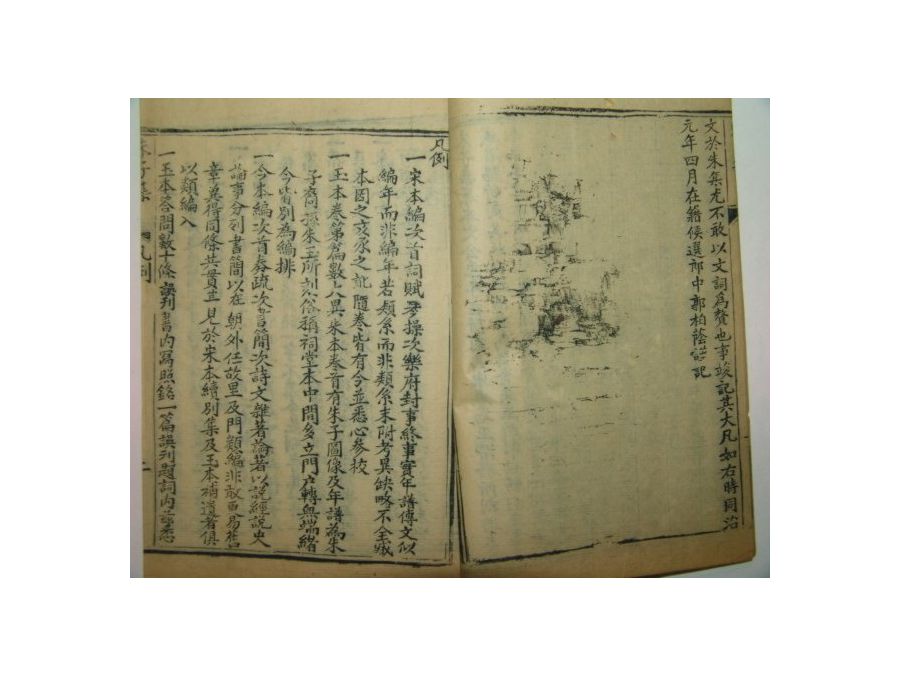 文於朱集尤不敢以文詞為贅也事竣記其大凡如右時同治
元年四月在籍候選郎中郭柏蔭謹記
凡例
一宋本編次首詞賦琴操次樂府封事終事實年譜傳文似
編年而非編年若類系而非類系末附考異缺略不全緘
本因之亥豕之訛隨卷皆有今並悉心參校
一玉本卷第篇數大異朱本卷首有朱子圖像及年譜為朱
子裔孫朱玉所刻俗稱祠堂本中間多立門戶轉無端緒
今皆別為編排
一今本編次首奏疏次書簡次詩文雜著論著以說經說史
論事分列書簡以在朝外任故里及門類編非敢更易舊
章冀得同條共貫其見於宋本續別集及玉本補遺者俱
以類編入
一玉本答問數十條誤刊書內寫照銘一篇誤列題詞內
朱子集
凡例
二